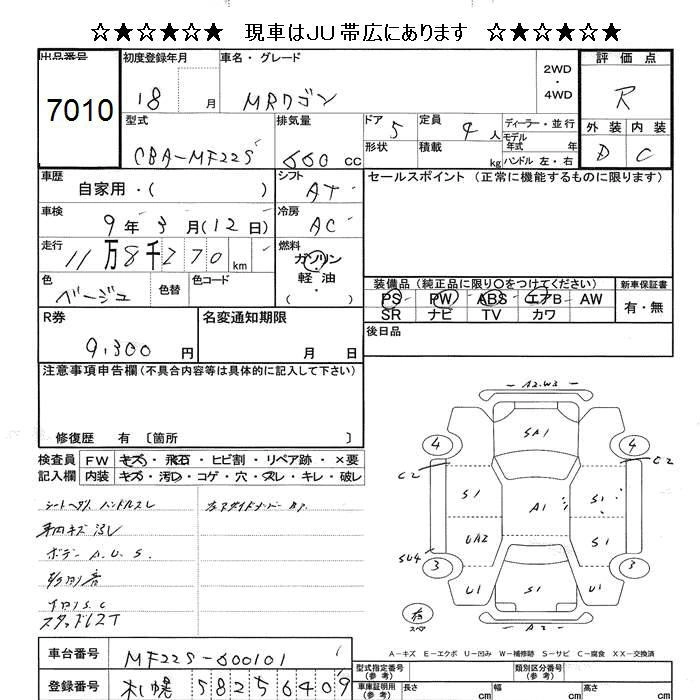 ☆★☆★☆★ 現車はJU帯広にあります ☆★☆★☆★
出品番号
7010
初度登録年月
18 月
車名・グレード
MRワゴン
2WD
・
4WD
評価点
R
外装 内装
D C
型式
CBA-MF22S
排気量
660 cc
ドア 5
定員 4 人
形状
積載 kg
ディーラー・並行
モデル
年式 年
ハンドル 左・右
車歴
自家用・( )
シフト
AT
セールスポイント (正常に機能するものに限ります)
車検
9年3月(12日)
冷房
AC
走行
11万8千270 km
燃料
ガソリン
軽油
( ・ )
色
ベージュ
色替
色コード
装備品 (純正品に限り〇をつけてください)
PS PW ABS エアB AW
SR ナビ TV カワ
新車保証書
有・無
R券
9,300 円
名変通知期限
月 日
後日品
注意事項申告欄(不具合内容等は具体的に記入して下さい)
修復歴 有 〔箇所 〕
検査員 FW キズ・飛石・ヒビ割・リペア跡・×要
記入欄 内装 キズ・汚レ・コゲ・穴・スレ・キレ・破レ
ボデー A.U.S.
A2.W3
SA1
4 4
C2 C2
S1 A1 S1
UA2 S1
SU4
3 3
U1 S1 U1
A2
スペア
A-キズ E-エクボ U-凹み W-補修跡 S-サビ C-腐食 XX-交換済
車台番号
MF22S-600101
登録番号
札幌 582 5 6409
型式指定番号
類別区分番号
車庫証明用
(参考)
長さ cm
幅 cm
高さ cm